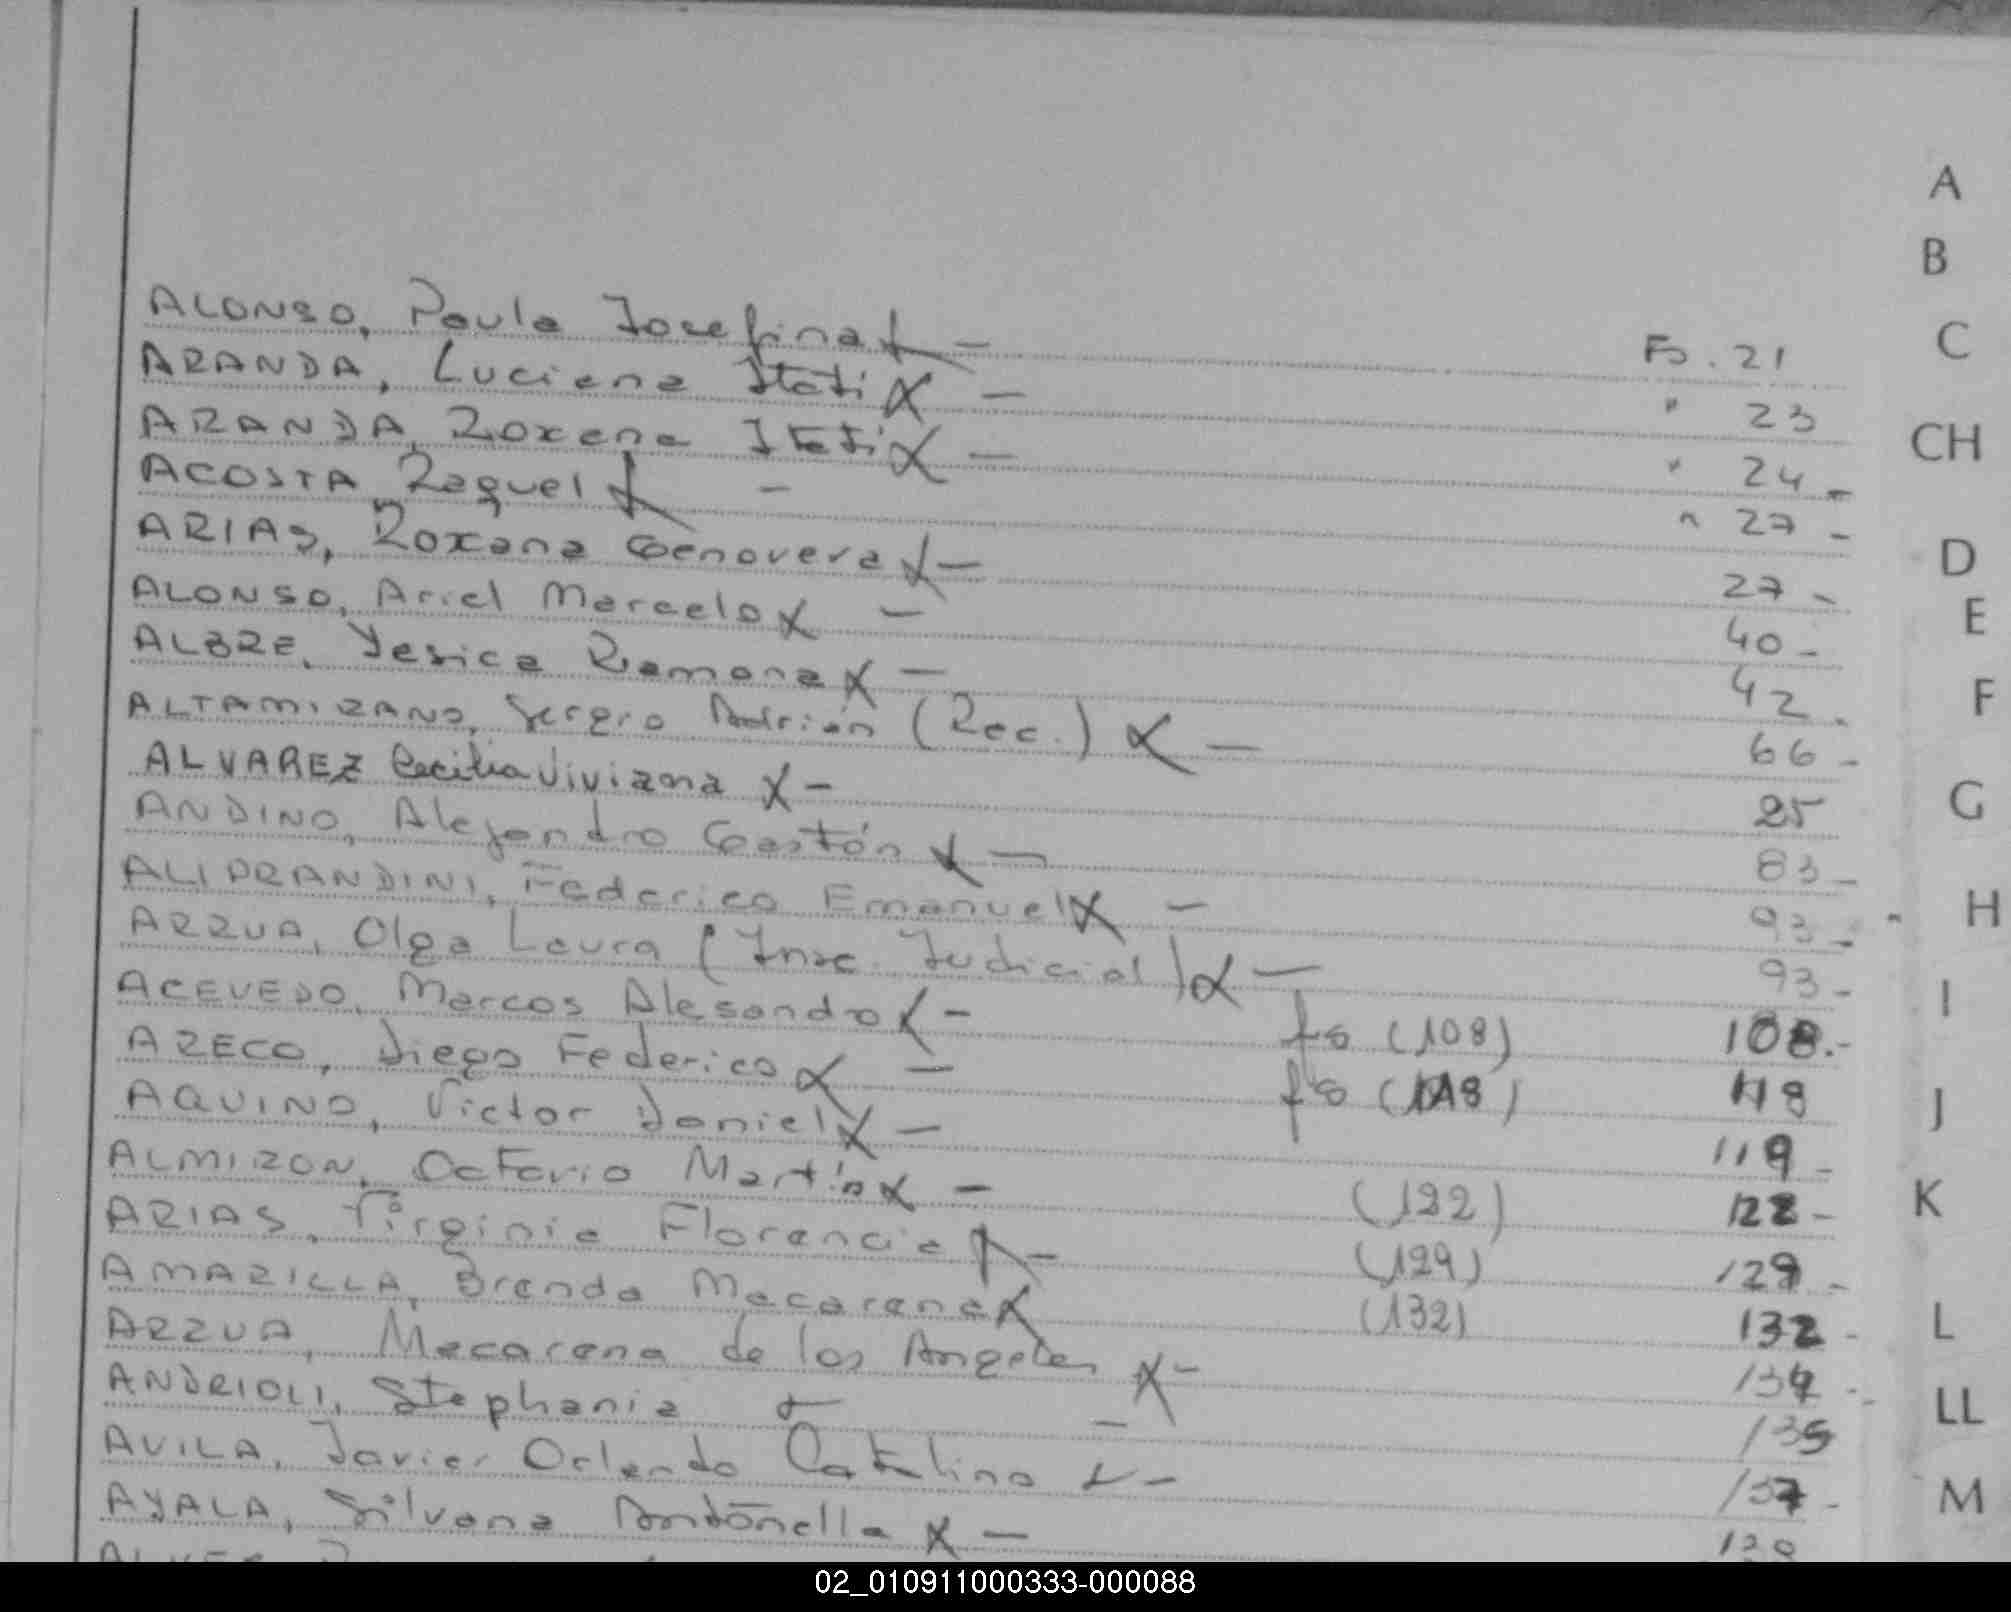 ALONSO, Paula Josefina X — Fo. 21
ARANDA, Luciana Itatí X — " 23
ARANDA, Roxana Itatí X — " 24 -
ACOSTA Raquel X — " 27 -
ARIAS, Roxana Genoveva X — 27 -
ALONSO, Ariel Marcelo X — 40 -
ALBRE, Yesica Ramona X — 42 -
ALTAMIRANO, Sergio Adrián (Rec.) X — 66 -
ALVAREZ Cecilia Viviana X — 25
ANDINO, Alejandro Gastón X — 83 -
ALIPRANDINI, Federico Emanuel X — 93 -
ARZUA, Olga Laura (Insc. Judicial) X — 93 -
ACEVEDO, Marcos Alesandro X — fo (108) 108.-
ARECO, Diego Federico X — fo (118) 118
AQUINO, Victor Daniel X — 119 -
ALMIRON, Octavio Martín X — (122) 122 -
ARIAS, Virginia Florencia X — (129) 129 -
AMARILLA, Brenda Macarena X (132) 132 -
ARZUA, Macarena de los Angeles X — 134 -
ANDRIOLI, Stephania — 135
AVILA, Javier Orlando Catalino X — 137 -
AYALA, Silvana Antonella X —
A
B
C
CH
D
E
F
G
H
I
J
K
L
LL
M
02_010911000333-000088